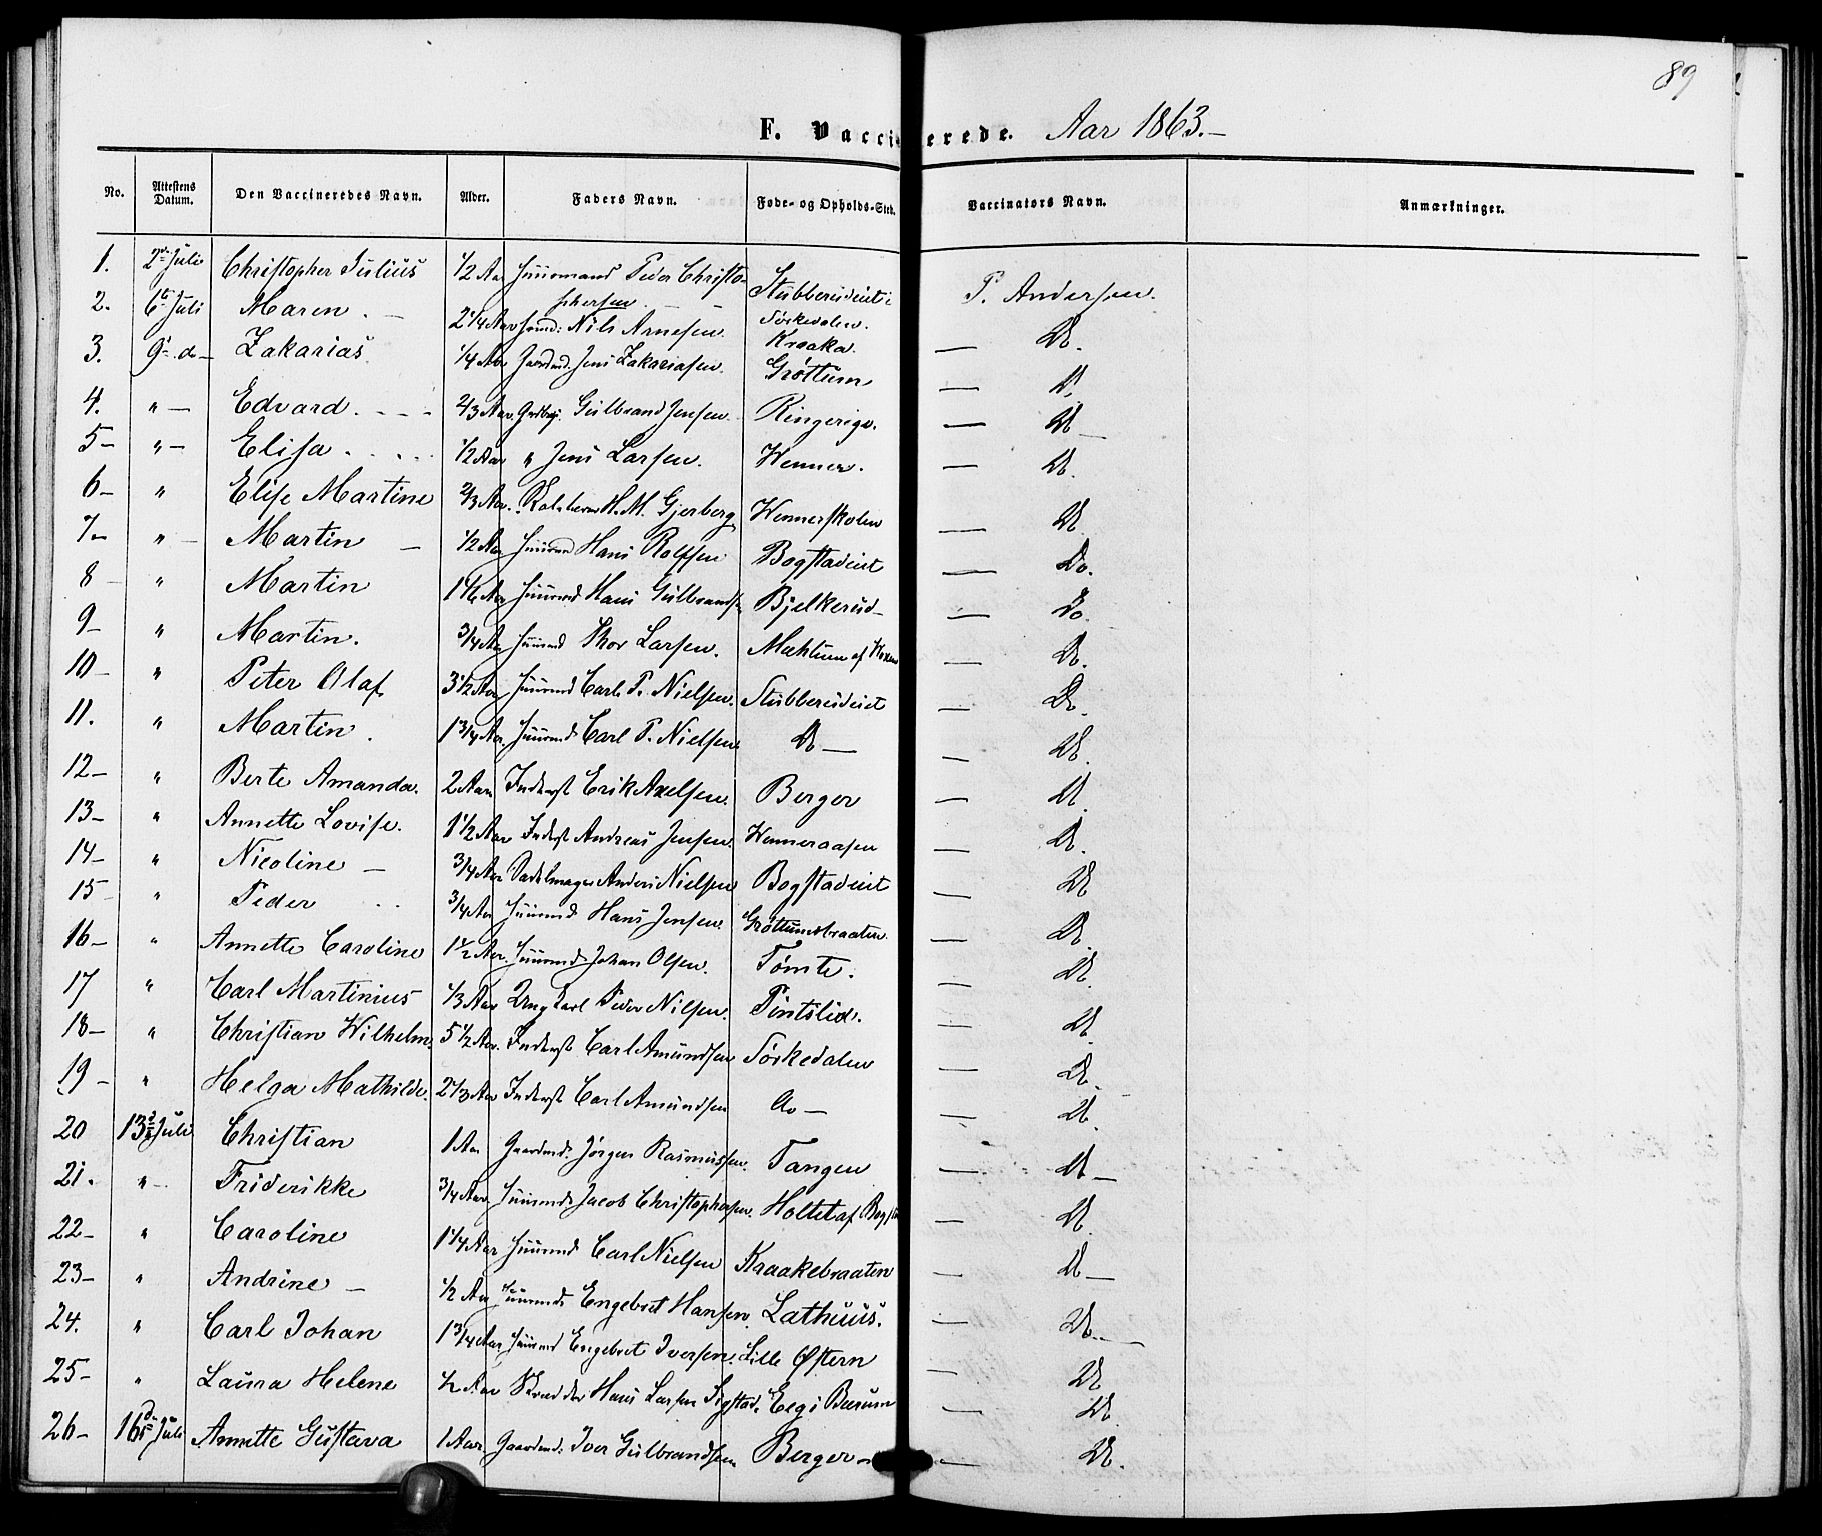 89
F. Vaccinerede. Aar 1863.–
No. Attestens Datum. Den Vaccineredes Navn. Alder. Faders Navn. Føde- og Opholds-Sted. Vaccinators Navn. Anmærkninger.
1. 2d Juli Christopher Julius 1/2 Aar Huusmand Peder Christo- Stubberudeiet i P. Andersen.
phersen Sørkedalen.
2. 6t Juli Maren. – 2 1/4 Aar Hmd: Nils Arnesen. Kraaka. — Do.
3. 9d d– Zakarias 1/4 Aar Gaardmd. Jens Zakariasen. Grøttum — D.
4. " – Edvard. 2/3 Aar. Gulbrand Jensen. Ringerige. — Do
5– " – Elisa. 1/2 Aar " Jens Larsen. Wenner. — Do.
6– " Elise Martine 2/3 Aar. H. M. Gjerberg Wennerskolen — Do.
7– " – Martin – 1/2 Aar Huusmd Hans Rolfsen Bogstadeiet — Do.
8 – " Martin 1 1/6 Aar Huusmd Hans Gulbrands- Bjelkerud – — Do.
9– " Martin. 3/4 Aar Huusmd Thor Larsen. Mæhlum af — Do.
10– " Peter Olaf 3 1/2 Aar Huusmd Carl P. Nielsen. Stubberudeiet — Do.
11. " Martin. 1 3/4 Aar Huusmd Carl P. Nielsen. Do — — Do.
12– " Berte Amanda. 2 Aar Inderst Erik Axelsen. Berger — Do.
13– " Annette Lovise. 1 1/2 Aar Inderst Andreas Jensen. Wenneraasen — Do.
14– " Nicoline – 3/4 Aar Sadelmager Anders Nielsen Bogstadeiet — Do
15– " Peder 3/4 Aar Huusmd Hans Jensen. Grøttumsbraaten. — Do.
16– " Annette Caroline 1 1/2 Aar. Huusmd Johan Olsen. Tømte. — Do.
17 " Carl Martinius 1/3 Aar Ungkarl Peder Nilsen. — Do.
18– " Christian Wilhelm. 5 1/2 Aar. Inderst Carl Amundsen Sørkedalen — Do.
19– " Helga Mathilde. 2 1/3 Aar Inderst Carl Amundsen Do — — Do.
20 13d Juli Christian 1 Aar Gaardmd. Jørgen Rasmussen. Tangen — Do –
21. " – Friderikke 3/4 Aar. Huusmd. Jacob Christophersen. Holtet af — Do.
22– " Caroline 1 1/4 Aar Huusmd Carl Nielsen Kraakebraaten — Do –
23– " Andrine – 1/2 Aar Huusmd: Engebret Hansen. Lathuus. — Do. –
24. " Carl Johan 1 3/4 Aar Huusmd Engebret Iversen. Lille Østern — Do
25– " Laura Helene 1/2 Aar Skrædder Hans Larsen Sigstad. Eeg i Bærum — Do.
26– 16d Juli Annette Gustava 1 Aar. Gaardmd: Iver Gulbrandsen Berger – — Do.